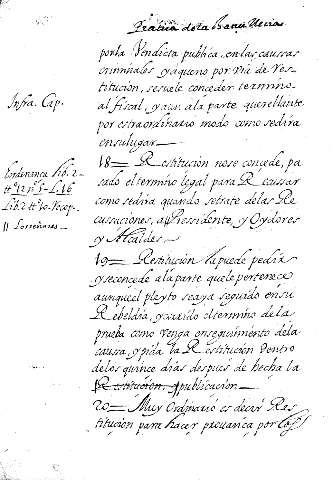 Pratica de la
por la Vendicta publica, en las caussas
criminales, y aqueno por via de res-
titucion, se suele conceder termino
al fiscal, y aun a la parte querellante
por estraordinario modo como se dira
en su lugar
Infra. Cap.
18 = Restitucion no se concede, pa
sado el termino legal para Recussar
como se dira quando se trate de las Re
cussaciones, a Presidente, y Oydores
y Alcaldes
Lib. 2
19 = Restitucion la puede pedir
y se concede a la parte que le pertenece
aunque el pleyto se aya seguido en su
Rebeldia, y avido el termino de la
prueba como venga en seguimiento de la
caussa, y pida la Restitucion dentro
de los quince dias despues de hecha la
Restitucion, publicacion
20 = Muy Ordinario es decir Res
titucion para hacer provanca por